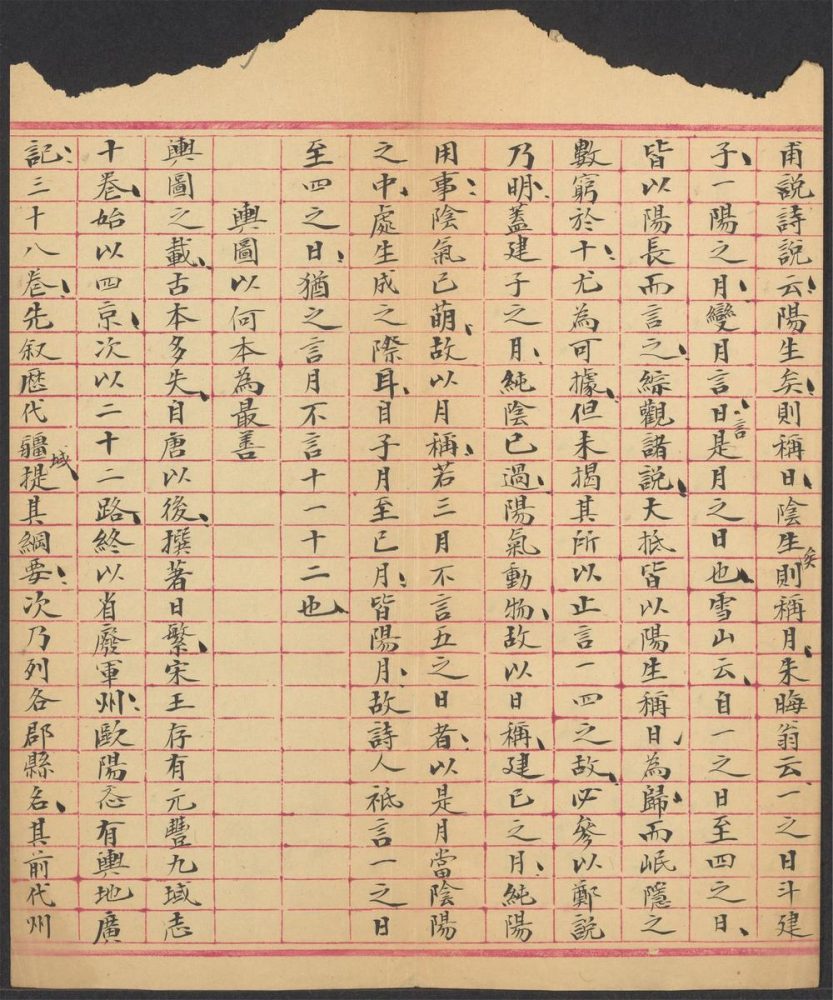 甫說詩說云、陽生矣、則稱日、陰生矣則稱月、朱晦翁云、一之日斗建
子、一陽之月、變月言日、言是月之日也、雪山云、自一之日至四之日、
皆以陽長而言之、綜觀諸說、大抵皆以陽生稱日、為歸、而岷隱之
數窮於十、尤為可據、但未揭其所以止言一四之故、必參以鄭說
乃明、蓋建子之月、純陰已過、陽氣動物、故以日稱、建巳之月、純陽
用事、陰氣已萌、故以月稱、若三月不言五之日者、以是月當陰陽
之中、處生成之際耳、自子月至巳月、皆陽月、故詩人祗言一之日
至四之日、猶之言月不言十一十二也、
輿圖以何本為最善
輿圖之載、古本多失、自唐以後、撰著日繁、宋王存有元豐九域志
十卷、始以四京、次以二十二路、終以省廢軍州、歐陽忞有輿地廣
記、三十八卷、先叙歷代疆域提其綱要、次乃列各郡縣名、其前代州